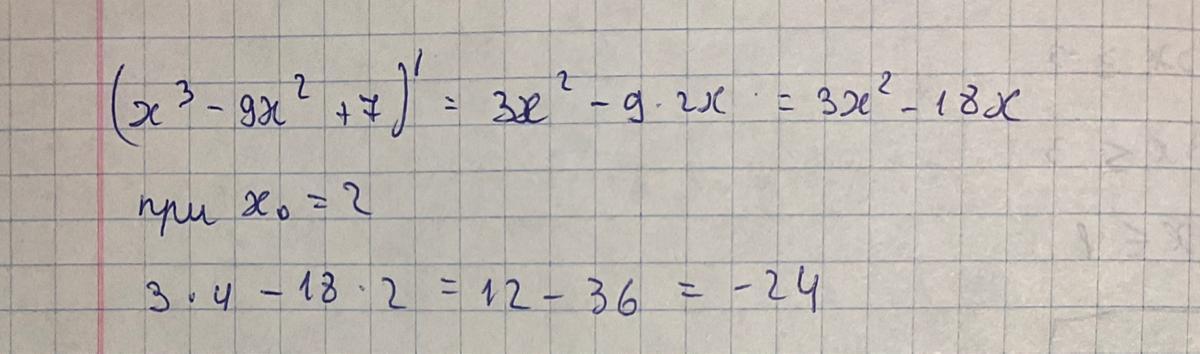 (x³ - 9x² + 7)' = 3x² - 9 · 2x = 3x² - 18x
при x₀ = 2
3 · 4 - 18 · 2 = 12 - 36 = -24